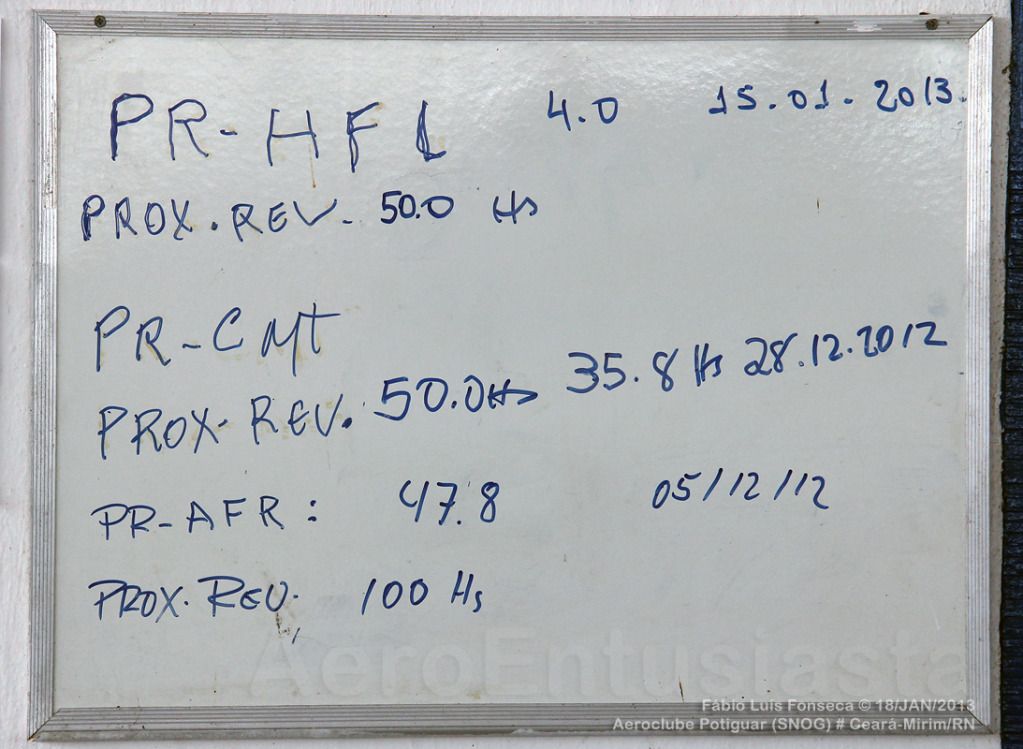 PR-HFL 4.0 15.01.2013.
PROX.REV. 50.0 Hs
PR-CMT
PROX.REV. 50.0Hs 35.8 Hs 28.12.2012
PR-AFR: 47.8 05/12/12
PROX.REV. 100 Hs
AeroEntusiasta
Fábio Luis Fonseca © 18/JAN/2013
Aeroclube Potiguar (SNOG) # Ceará-Mirim/RN